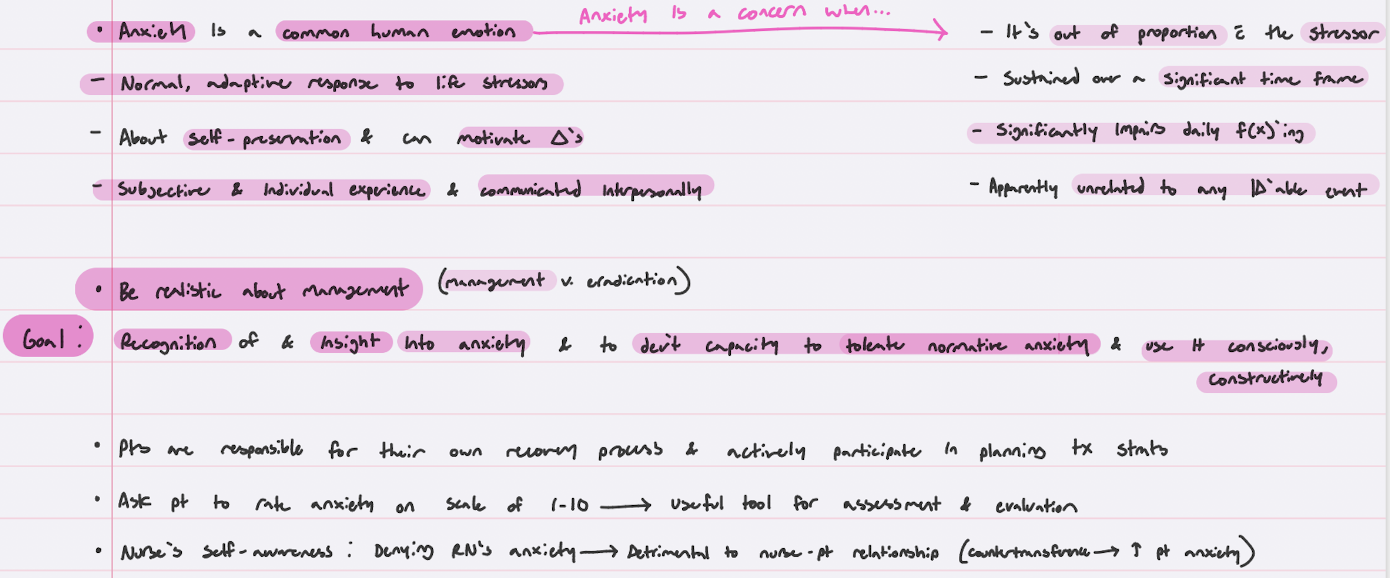 Anxiety is a concern when...
• Anxiety is a common human emotion → - It's out of proportion c̄ the stressor
- Normal, adaptive response to life stressors - Sustained over a significant time frame
- About self-preservation & can motivate Δ's - Significantly impairs daily f(x)'ing
- Subjective & individual experience & communicated interpersonally - Apparently unrelated to any ID'able event
• Be realistic about management (management v. eradication)
Goal: Recognition of & insight into anxiety & to dev't capacity to tolerate normative anxiety & use it consciously,
constructively
• Pts are responsible for their own recovery process & actively participate in planning tx strats
• Ask pt to rate anxiety on scale of 1-10 → useful tool for assessment & evaluation
• Nurse's self-awareness: Denying RN's anxiety → Detrimental to nurse-pt relationship (countertransference → ↑ pt anxiety)